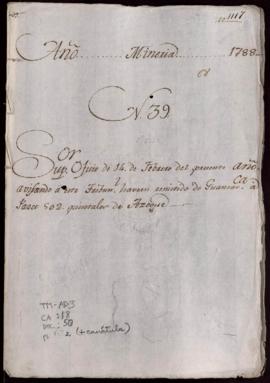 1117
Año Mineria 1788
N. 39
Sup.or Oficio de 14 de Febrero del presente año
avisando a este Tribun.l haverse remitido de Guancav.ca a
Pasco 502. quintales de Azogue
TM-AD3
CA: 18
DOC: 50
2 (+ carátula)